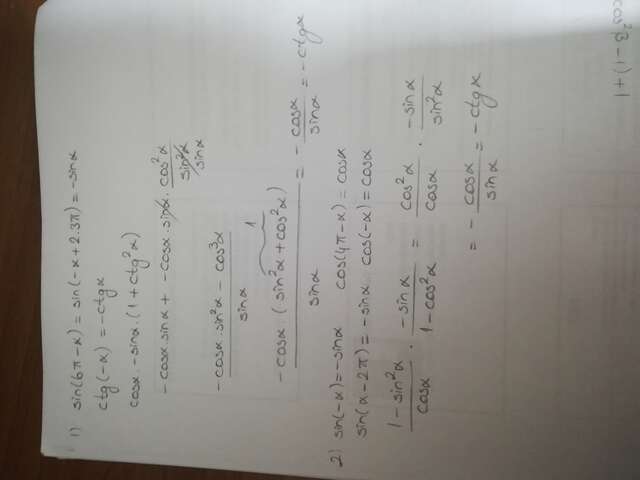 1) sin(6π-α) = sin(-α+2·3π) = -sinα
ctg(-α) = -ctgα
cosα·-sinα·(1+ctg²α)
-cosα·sinα + -cosα·sinα· cos²α / sin²α
sinα
-cosα·sin²α - cos³α / sinα
1
-cosα·(sin²α+cos²α) / sinα = - cosα / sinα = -ctgα
2) sin(-α) = -sinα cos(4π-α) = cosα
sin(α-2π) = -sinα cos(-α) = cosα
1-sin²α / cosα · -sinα / 1-cos²α = cos²α / cosα · -sinα / sin²α
= - cosα / sinα = -ctgα
cos²β-1)+1